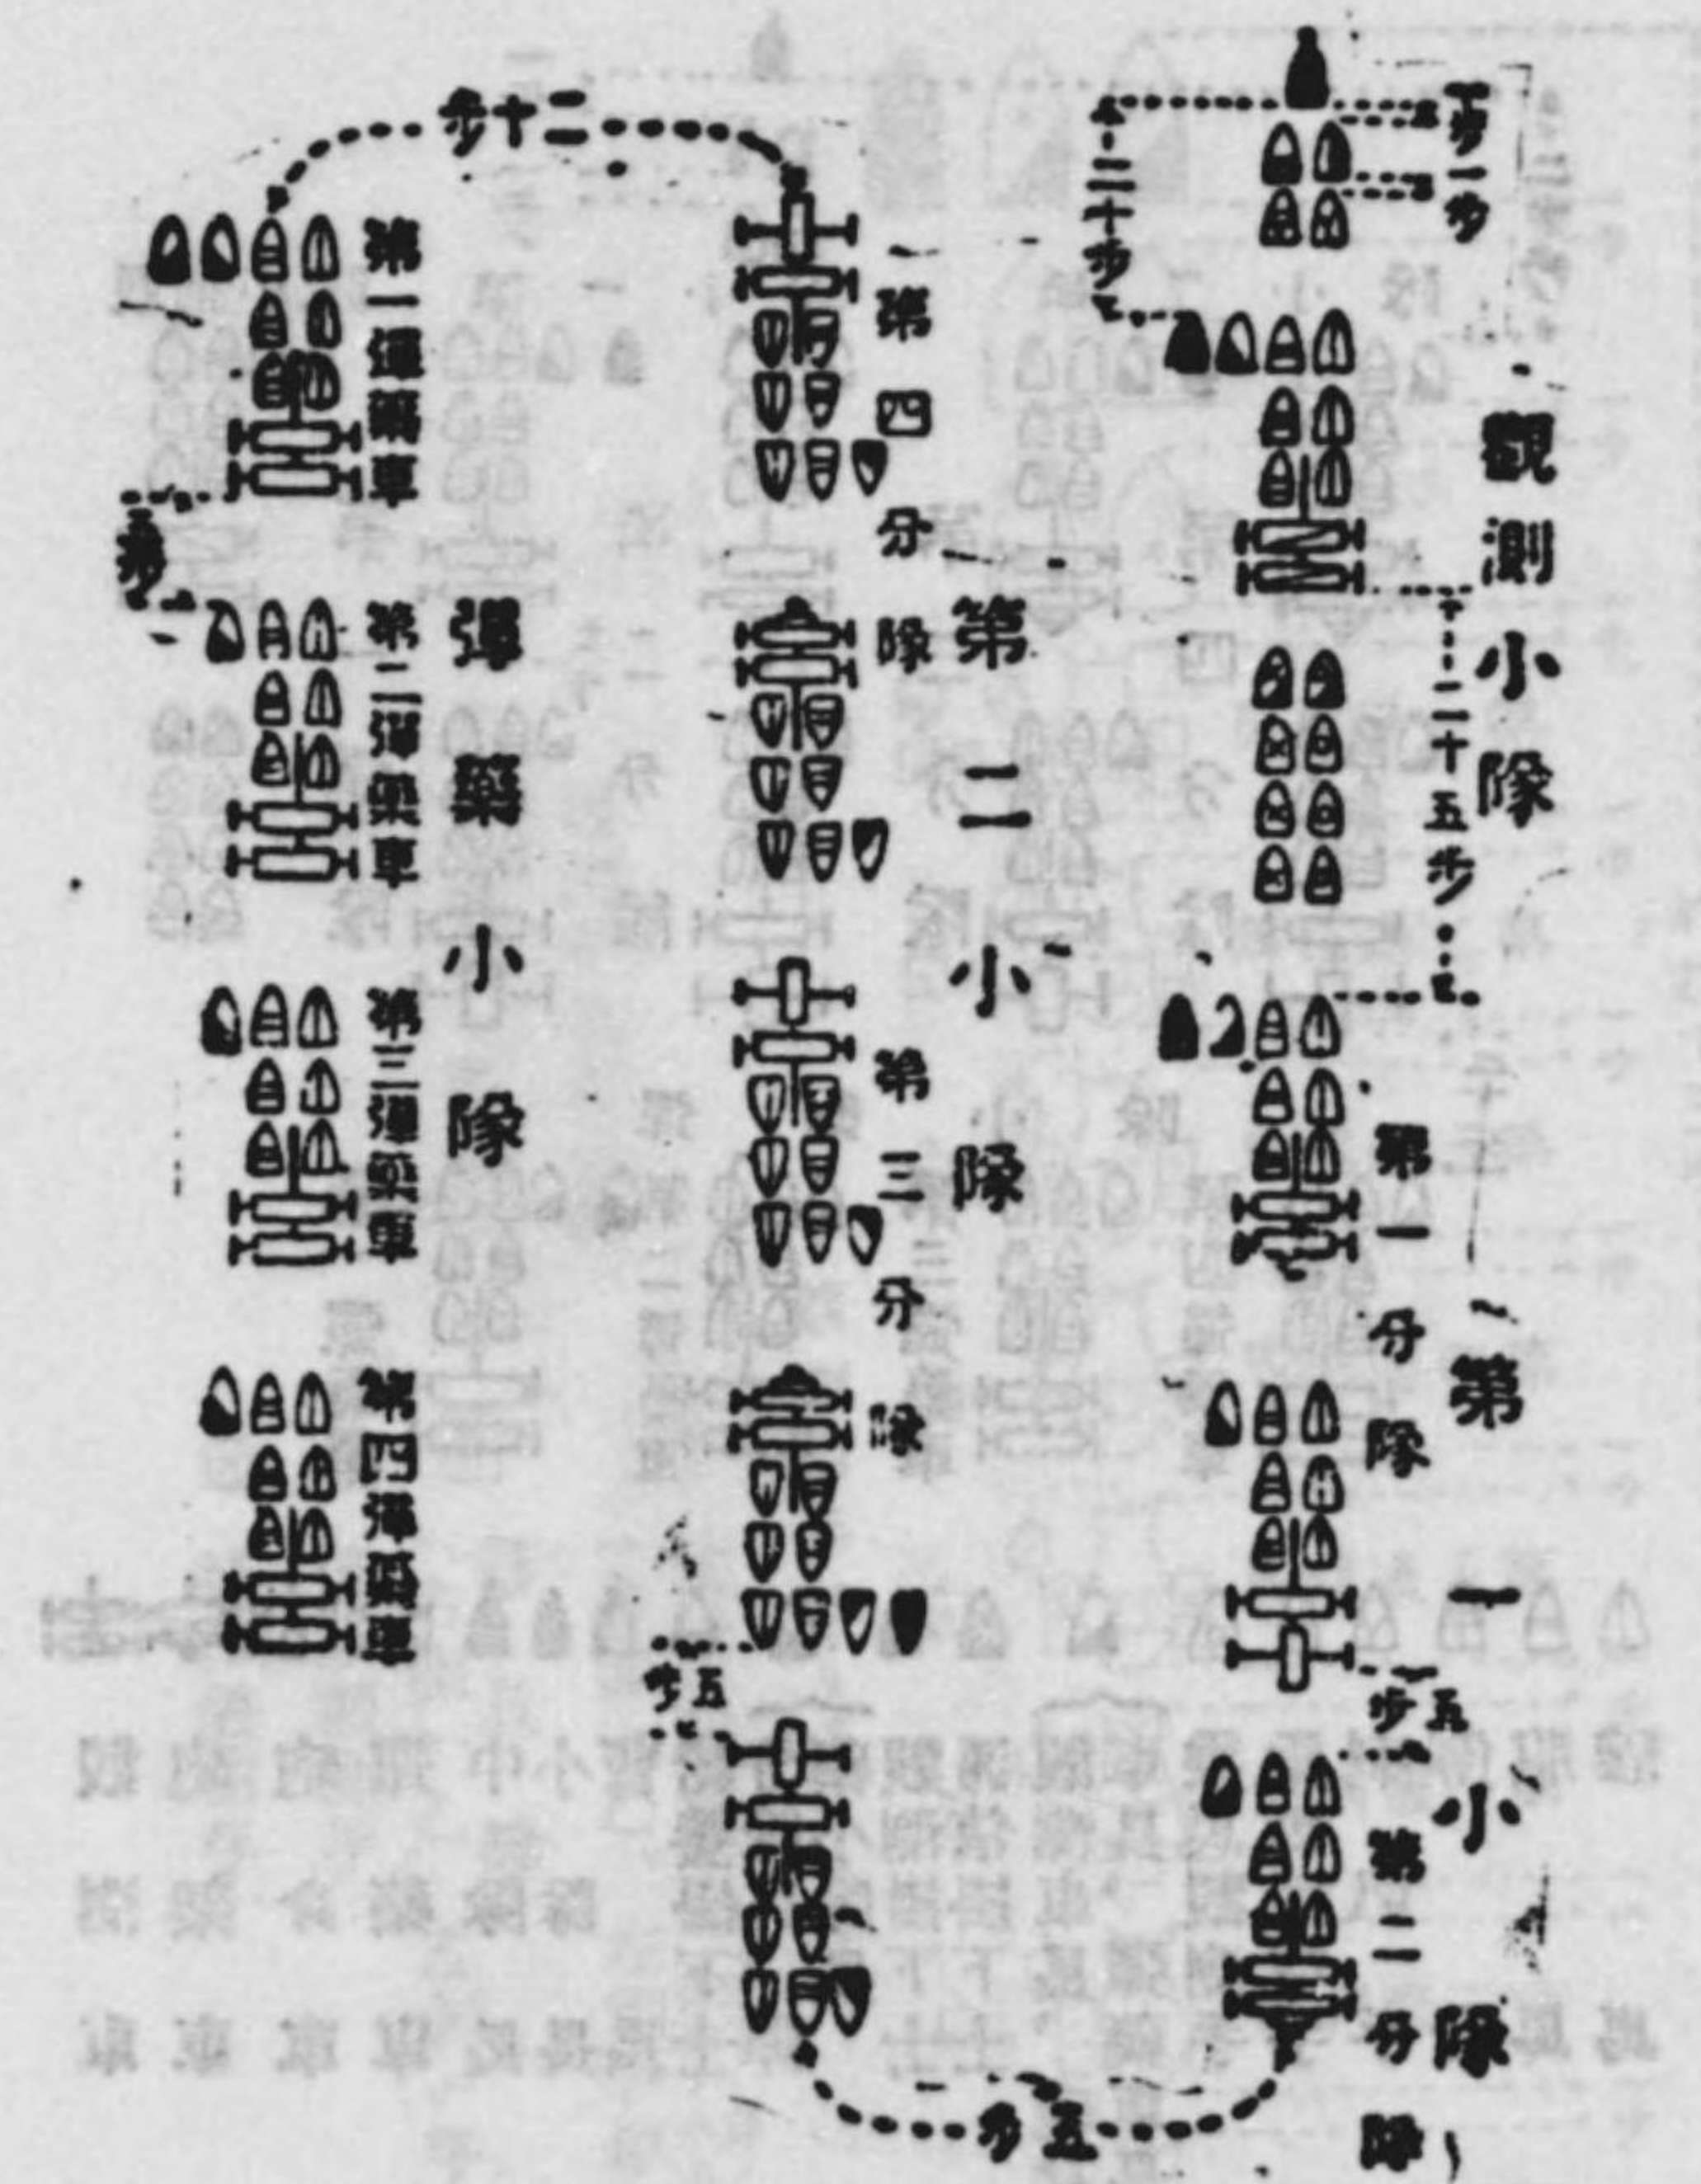 一步
一步
二十步
觀測小隊
二十五步
第一小隊
第一分隊
五步
第二分隊
五步
第二小隊
第三分隊
第四分隊
五步
二十步
彈藥小隊
第一彈藥車
第二彈藥車
第三彈藥車
第四彈藥車